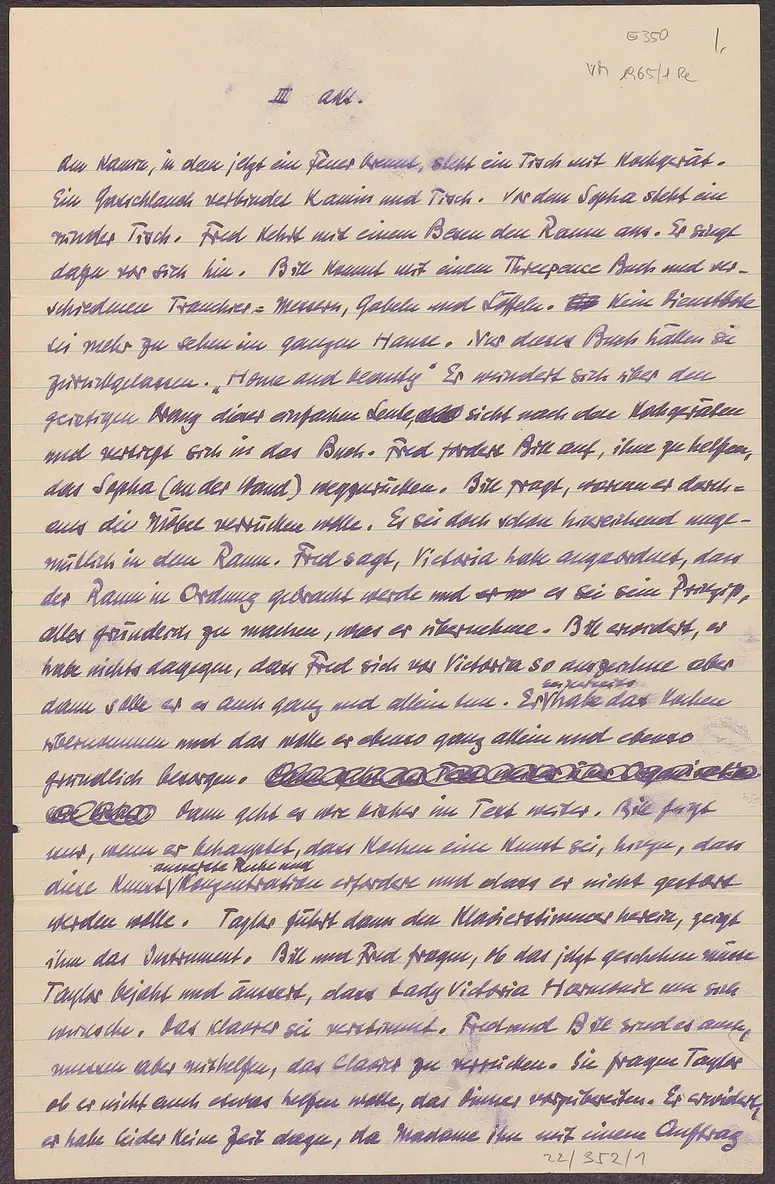 E350 1.
VM 1965/1 Re
III Akt.
Am Kamin, in dem jetzt ein Feuer brennt, steht ein Tisch mit Kochgerät.
Ein Gasschlauch verbindet Kamin und Tisch. Vor dem Sopha steht ein
runder Tisch. Fred kehrt mit einem Besen den Raum aus. Er singt
dazu vor sich hin. Bill kommt mit einem Threepence Buch und ver-
schiedenen Tranchier=Messern, Gabeln und Löffeln. Kein Dienstbote
sei mehr zu sehen im ganzen Hause. Nur dieses Buch hätten sie
zurückgelassen. „Home and beauty" Er wundert sich über den
geistigen Drang dieser einfachen Leute, sieht nach den Kochgeräten
und vertieft sich in das Buch. Fred fordert Bill auf, ihm zu helfen,
das Sopha (an der Wand) wegzurücken. Bill fragt, warum er durch=
aus die Möbel verrücken wolle. Es sei doch schon hinreichend unge-
mütlich in dem Raum. Fred sagt, Victoria habe angeordnet, dass
der Raum in Ordnung gebracht werde und es sei sein Prinzip,
alles gründlich zu machen, was er übernehme. Bill erwidert, er
habe nichts dagegen, dass Fred sich vor Victoria so auszeichne aber
dann solle er es auch ganz und allein tun. Er seinerseits habe das Kochen
übernommen und das wolle er ebenso ganz allein und ebenso
gründlich besorgen.
Dann geht es wie bisher im Text weiter. Bill fügt
nur, wenn er behauptet, dass Kochen eine Kunst sei, hinzu, dass
diese Kunst äusserste Ruhe und Konzentration erfordere und dass er nicht gestört
werden wolle. Taylor führt dann den Klavierstimmer herein, zeigt
ihm das Instrument. Bill und Fred fragen, ob das jetzt geschehen müsse
Taylor bejaht und äussert, dass Lady Victoria Harmonie um sich
wünsche. Das Klavier sei verstimmt. Fred und Bill sind es auch,
müssen aber mithelfen, das Clavier zu verrücken. Sie fragen Taylor
ob er nicht auch etwas helfen wolle, das Dinner vorzubereiten. Er erwidert,
er habe leider keine Zeit dazu, da Madame ihn mit einem Auftrag
22/352/1